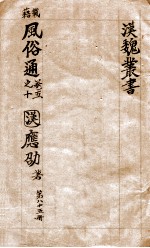 漢魏叢書
載籍
風俗通 卷五之十 漢應劭著
第八十五册